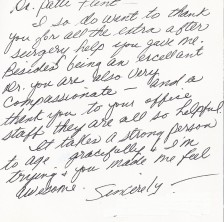 Dr. Patti Flint
I so do want to thank
you for all the extra after
surgery help you gave me.
Besides being an excellant
Dr. you are also very
compassionate — and a
thank you to your office
staff they are all so helpful
It takes a strong person
to age gracefully & I'm
trying & you made me feel
awesome.
Sincerely —